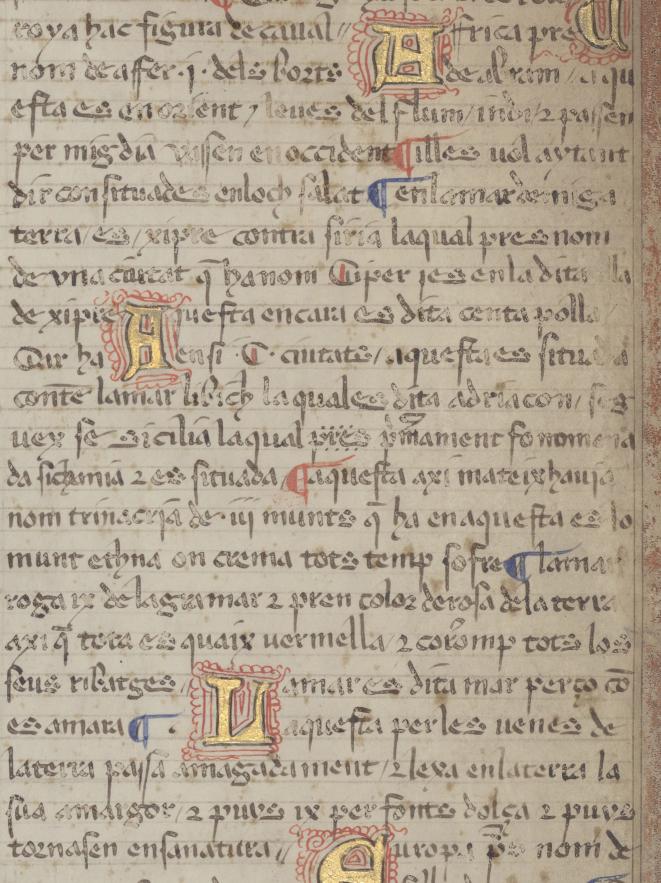 roya hac figura de caual // Affrica pre
nom de affer · i · dels borts de abram / aqu
esta es en orient / leues del flum / indi / 2 passen
per mig dia vassen en occident ¶ illes uol aytant
dir con situades en loch salat ¶ en la mar
terra / es / xipre contra siria laqual pres nom
de vna ciutat q̄ ha nom Ciper ies en la dita illa
de xipre Aquesta encara es dita centapolla
Car ha aensi · C · ciutats / aquesta es situada
conte la mar libich la qual es dita adriacon / seg
uex se Sicilia laqual pres p̄mament fo nomena
da sichania 2 es situada ¶ aquesta axi mateix hauia
nom trinacria de · iii munts q̄ ha en aquesta es lo
munt ethna on crema tots temp sofre ¶ la mar
roga ix de la gra mar 2 pren color de rosa de la terra
axi q̄ tota es quaix vermella / 2 coromp tots los
seus ribatges / La mar es dita mar perço cō
es amara ¶ · aquesta per les uenes de
la terra passa amagadament / 2 lexa en la terra la
sua amargor / 2 puys ix per fonts dolça 2 puys
tornasen en sa natura // Europa p̄s nom de